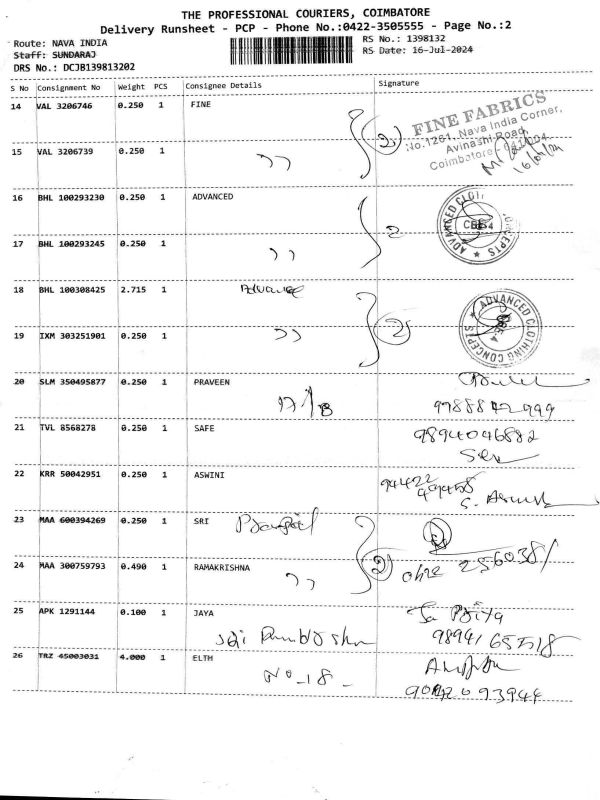 THE PROFESSIONAL COURIERS, COIMBATORE
Delivery Runsheet - PCP - Phone No.:0422-3505555 - Page No.:2
Route: NAVA INDIA
RS No.: 1398132
Staff: SUNDARAJ
RS Date: 16-Jul-2024
DRS No.: DCJB139813202
S No Consignment No Weight PCS Consignee Details Signature
14 VAL 3206746 0.250 1 FINE
FINE FABRICS
No.1261, Nava India Corner,
Avinashi Road,
Coimbatore - 641004
2
15 VAL 3206739 0.250 1 ,,
16 BHL 100293230 0.250 1 ADVANCED
2
ADVANCED CLOTHING CONCEPTS
CBE-4
17 BHL 100293245 0.250 1 ,,
18 BHL 100308425 2.715 1 Advance
2
ADVANCED CLOTHING CONCEPTS
19 IXM 303251901 0.250 1 ,,
20 SLM 350495877 0.250 1 PRAVEEN
21 TVL 8568278 0.250 1 SAFE
9894046882
22 KRR 50042951 0.250 1 ASWINI
94422
23 MAA 600394269 0.250 1 SRI
2
24 MAA 300759793 0.490 1 RAMAKRISHNA
,,
25 APK 1291144 0.100 1 JAYA
26 TRZ 45003031 4.000 1 ELTH
No-18-